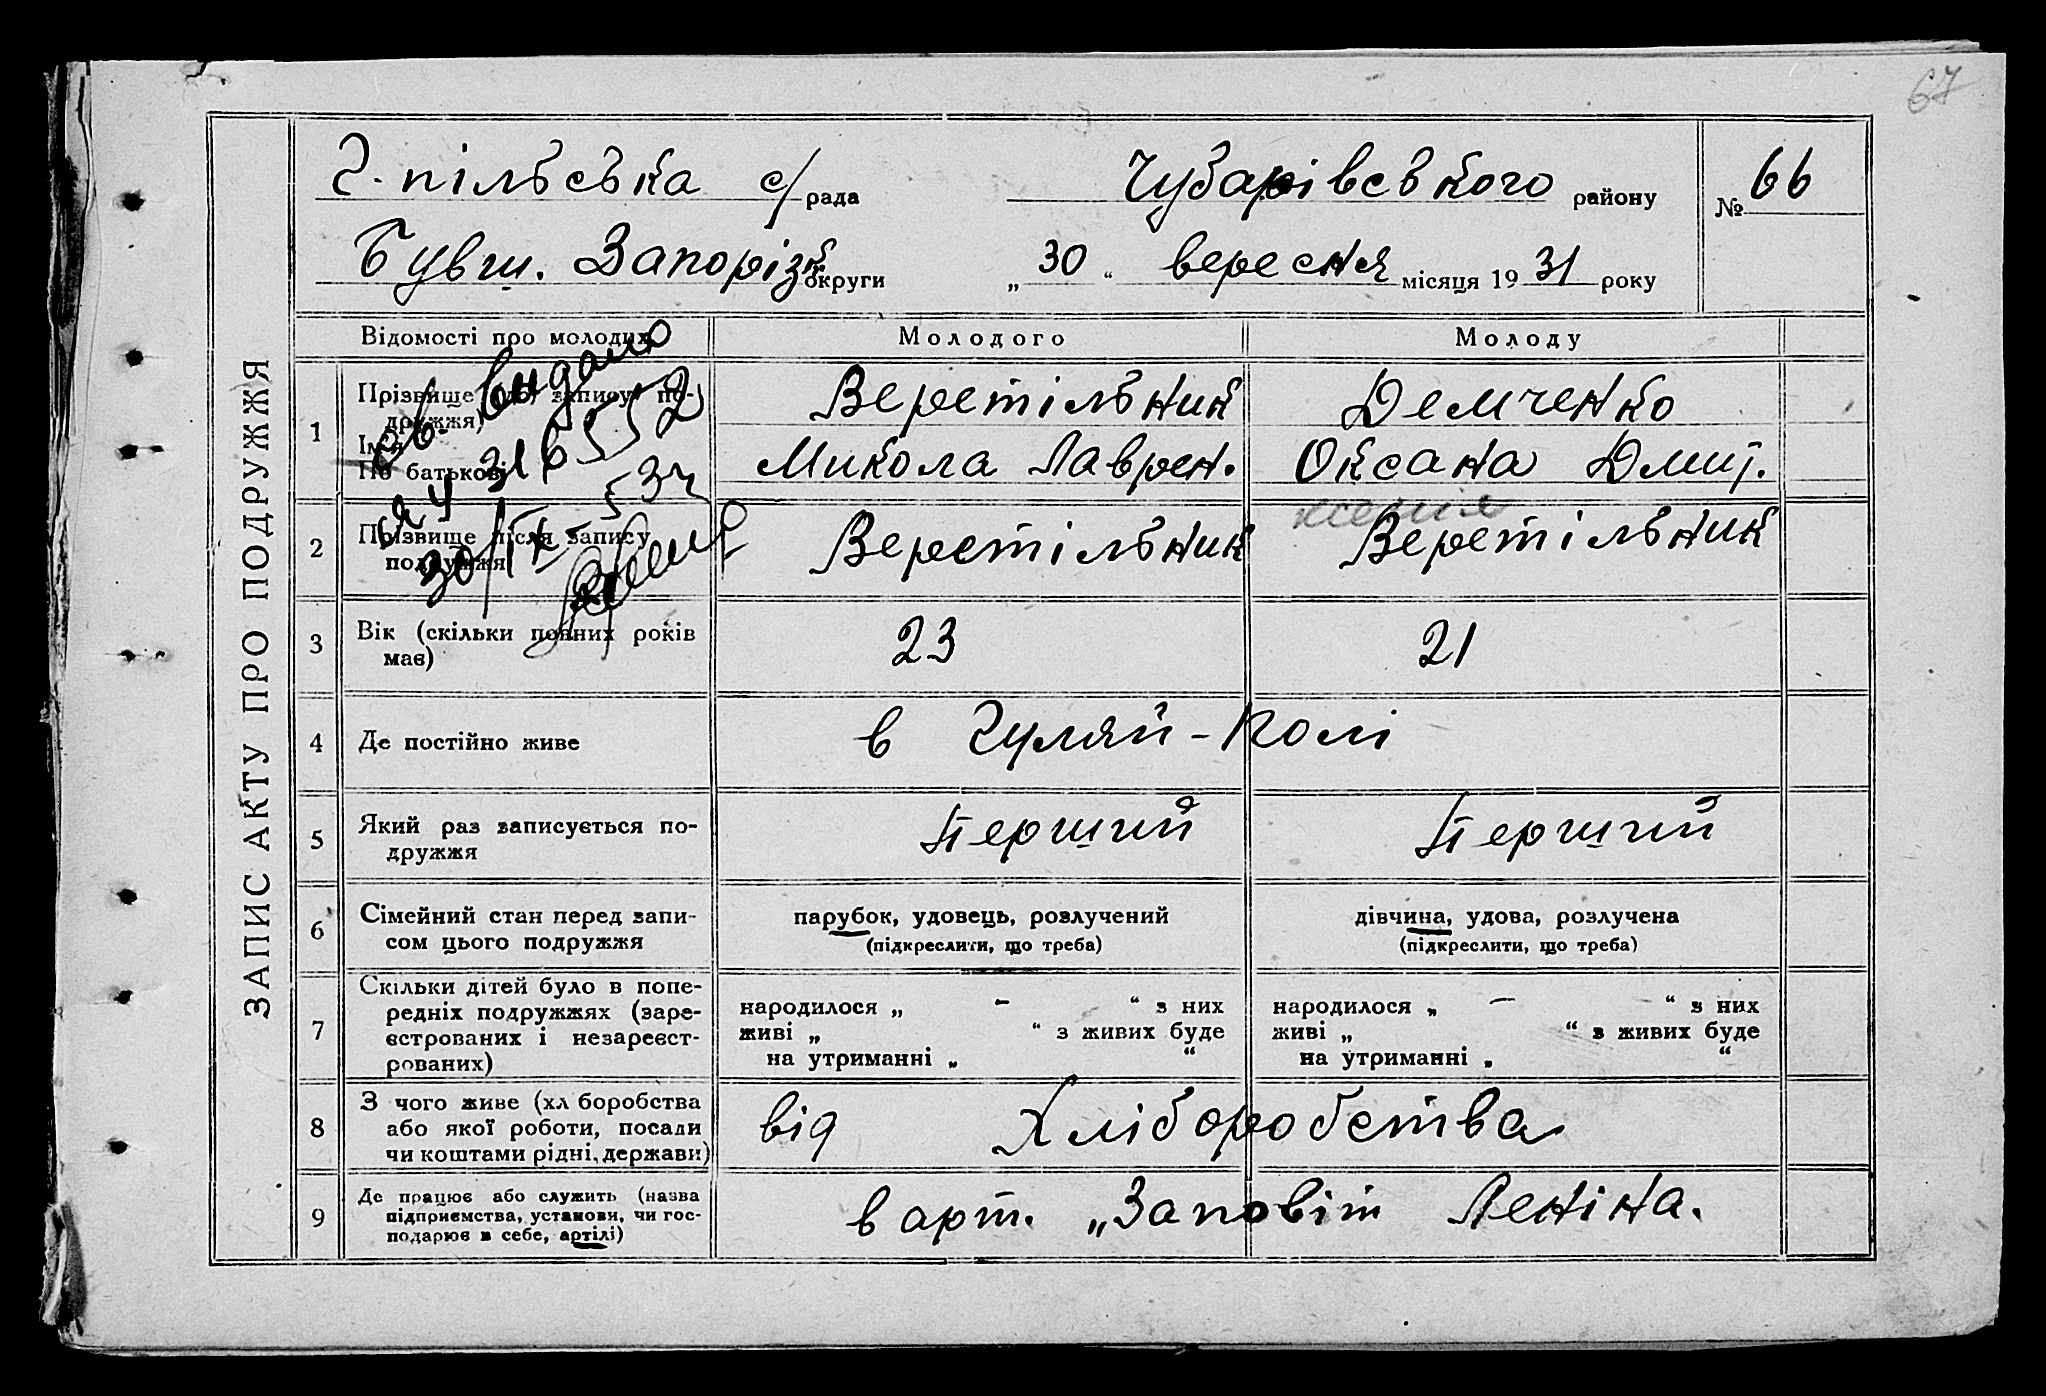 67
ЗАПИС АКТУ ПРО ПОДРУЖЖЯ
Г-пільська с/рада Чубарівського району № 66
Бувш. Запорізк округи „30“ вересня місяця 1931 року
Відомості про молодих Молодого Молоду
1 Прізвище (до запису по-
дружжя)
Ім'я
По батькові
Веретільник
Микола Лаврен.
Демченко
Оксана Дмит.
ксенія
2 Прізвище після запису
подружжя
Веретільник Веретільник
св. видано
316552
30/IX 53
3 Вік (скільки повних років
має)
23 21
4 Де постійно живе
в Гуляй-Полі
5 Який раз записується по-
дружжя
Перший Перший
6 Сімейний стан перед запи-
сом цього подружжя
парубок, удовець, розлучений
(підкреслити, що треба)
дівчина, удова, розлучена
(підкреслити, що треба)
7 Скільки дітей було в попе-
редніх подружжях (заре-
єстрованих і незареєст-
рованих)
народилося „ – “ з них
живі „ “ з живих буде
на утриманні „ “
народилося „ – “ з них
живі „ “ з живих буде
на утриманні „ “
8 З чого живе (хл боробства
або якої роботи, посади
чи коштами рідні, держави)
від Хліборобства
9 Де працює або служить (назва
підприємства, установи, чи гос-
подарює в себе, артілі)
в арт. „Заповіт Леніна.